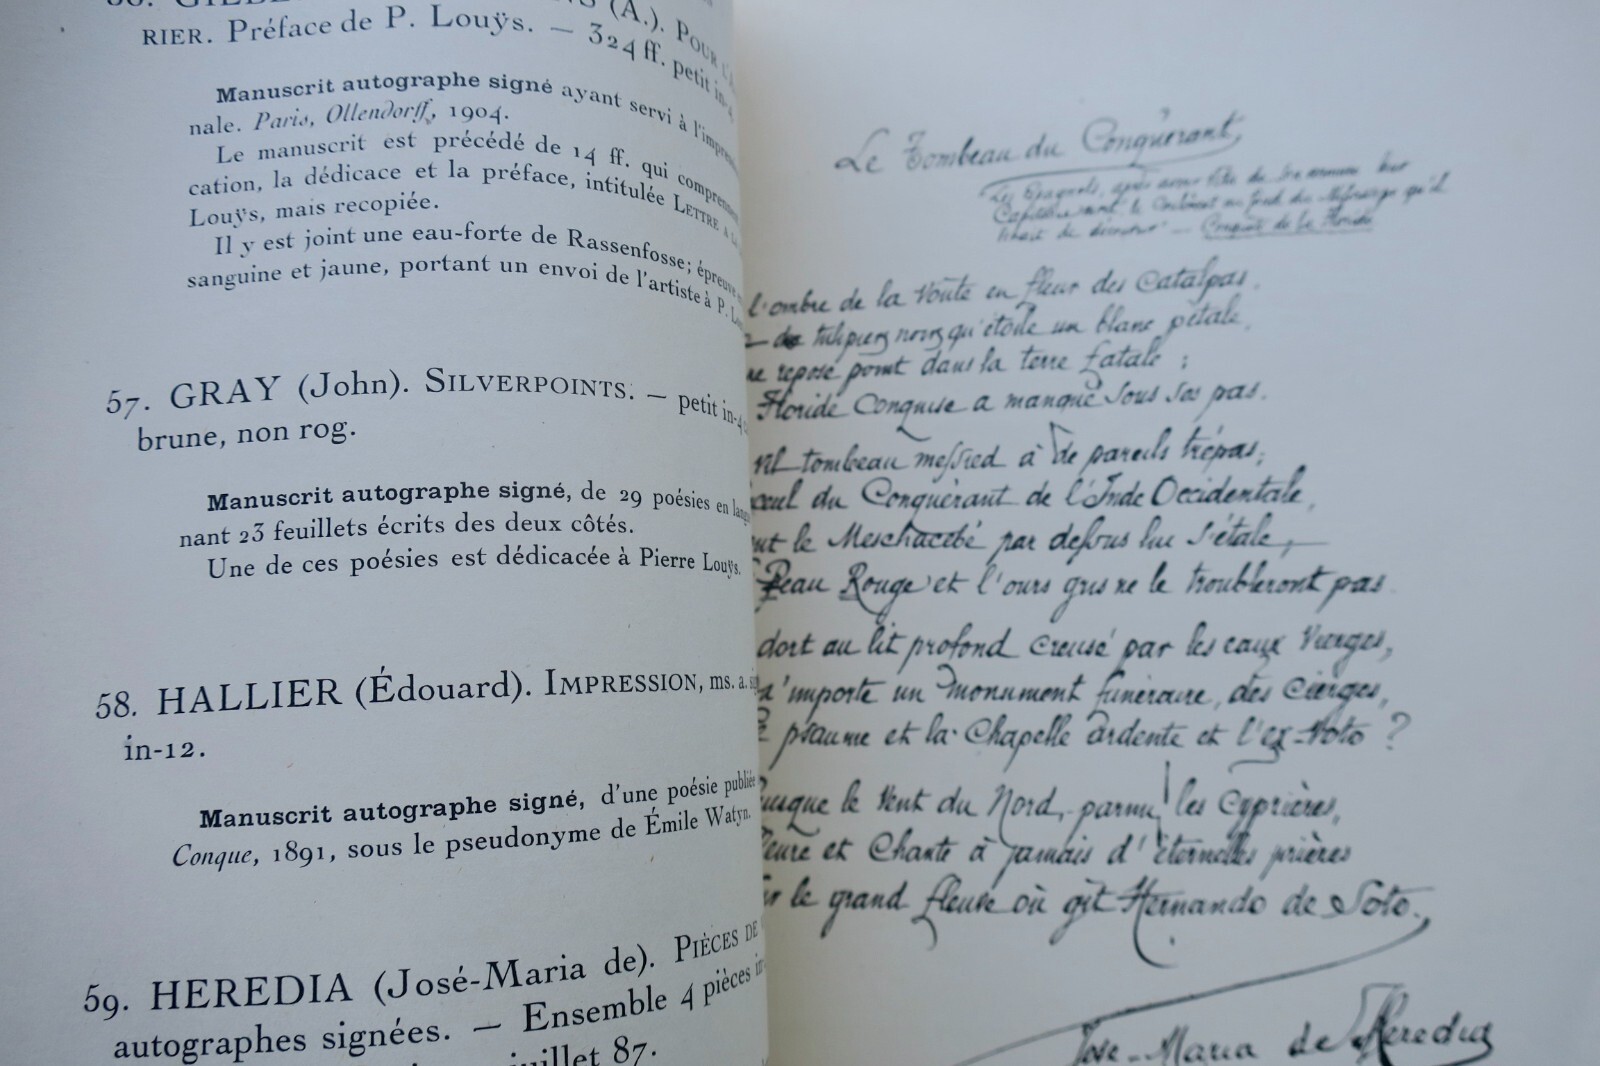 (A.). POUR L'
RIER. Préface de P. Louÿs. — 324 ff. petit in-4
Manuscrit autographe signé ayant servi à l'impres
nale. Paris, Ollendorff, 1904.
Le manuscrit est précédé de 14 ff. qui comprennen
cation, la dédicace et la préface, intitulée LETTRE à
Louÿs, mais recopiée.
Il y est joint une eau-forte de Rassenfosse; épreuve
sanguine et jaune, portant un envoi de l'artiste à P. Lou
57. GRAY (John). SILVERPOINTS. — petit in-4
brune, non rog.
Manuscrit autographe signé, de 29 poésies en lang
nant 23 feuillets écrits des deux côtés.
Une de ces poésies est dédicacée à Pierre Louÿs.
58. HALLIER (Édouard). IMPRESSION, ms. a. si
in-12.
Manuscrit autographe signé, d'une poésie publiée
Conque, 1891, sous le pseudonyme de Émile Watyn.
59. HEREDIA (José-Maria de). PIÈCES DE
autographes signées. — Ensemble 4 pièces in
juillet 87.
Le Tombeau du Conquérant,
Les Espagnols, après avoir
Capitaine le au fond du qu'il
— Conquête de la Floride
l'ombre de la Voûte en fleur des Catalpas
tulipiers noirs qu'étoile un blanc pétale,
ne repose point dans la terre fatale ;
Floride Conquise a manqué sous ses pas.
vil tombeau messied à de pareils trépas;
ceul du Conquérant de l'Inde Occidentale,
ut le Meschacébé par dessus lui s'étale,
Peau Rouge et l'ours gris ne le troubleront pas
dort au lit profond creusé par les eaux Vierges,
'importe un monument funéraire, des Cierges,
psaume et la Chapelle ardente et l'ex-Voto ?
usque le Vent du Nord, parmi les Cyprières,
leure et Chante à jamais d'éternelles prières
ur le grand fleuve où gît Hernando de Soto.
José-Maria de Heredia